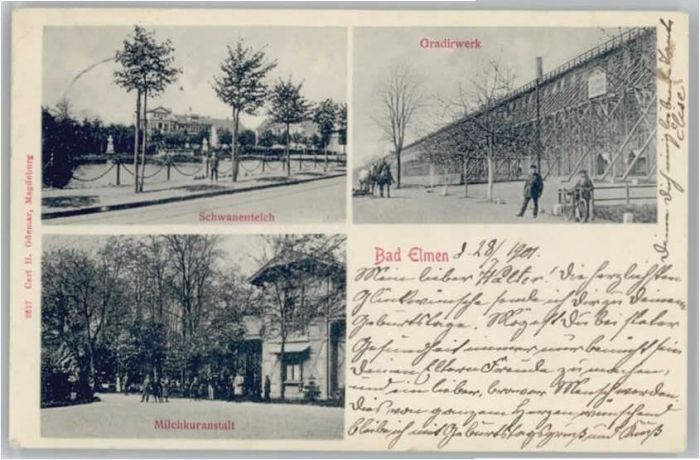 Gradirwerk
Schwanenteich
Milchkuranstalt
2617 Carl H. Odemar, Magdeburg
Bad Elmen d. 28/ 1901.
Mein lieber Walter! Die herzlichsten
Glückwünsche sende ich dir zu deinem
Geburtstage. Mögest Du bei steter
Gesundheit immer nur bemüht sein
deinen Eltern Freude zu machen,
und ein lieber, braver Mensch werden.
Dies von ganzem Herzen wünschend
bleibe ich mit Geburtstagsgruß und Kuß
Deine dich
Elise